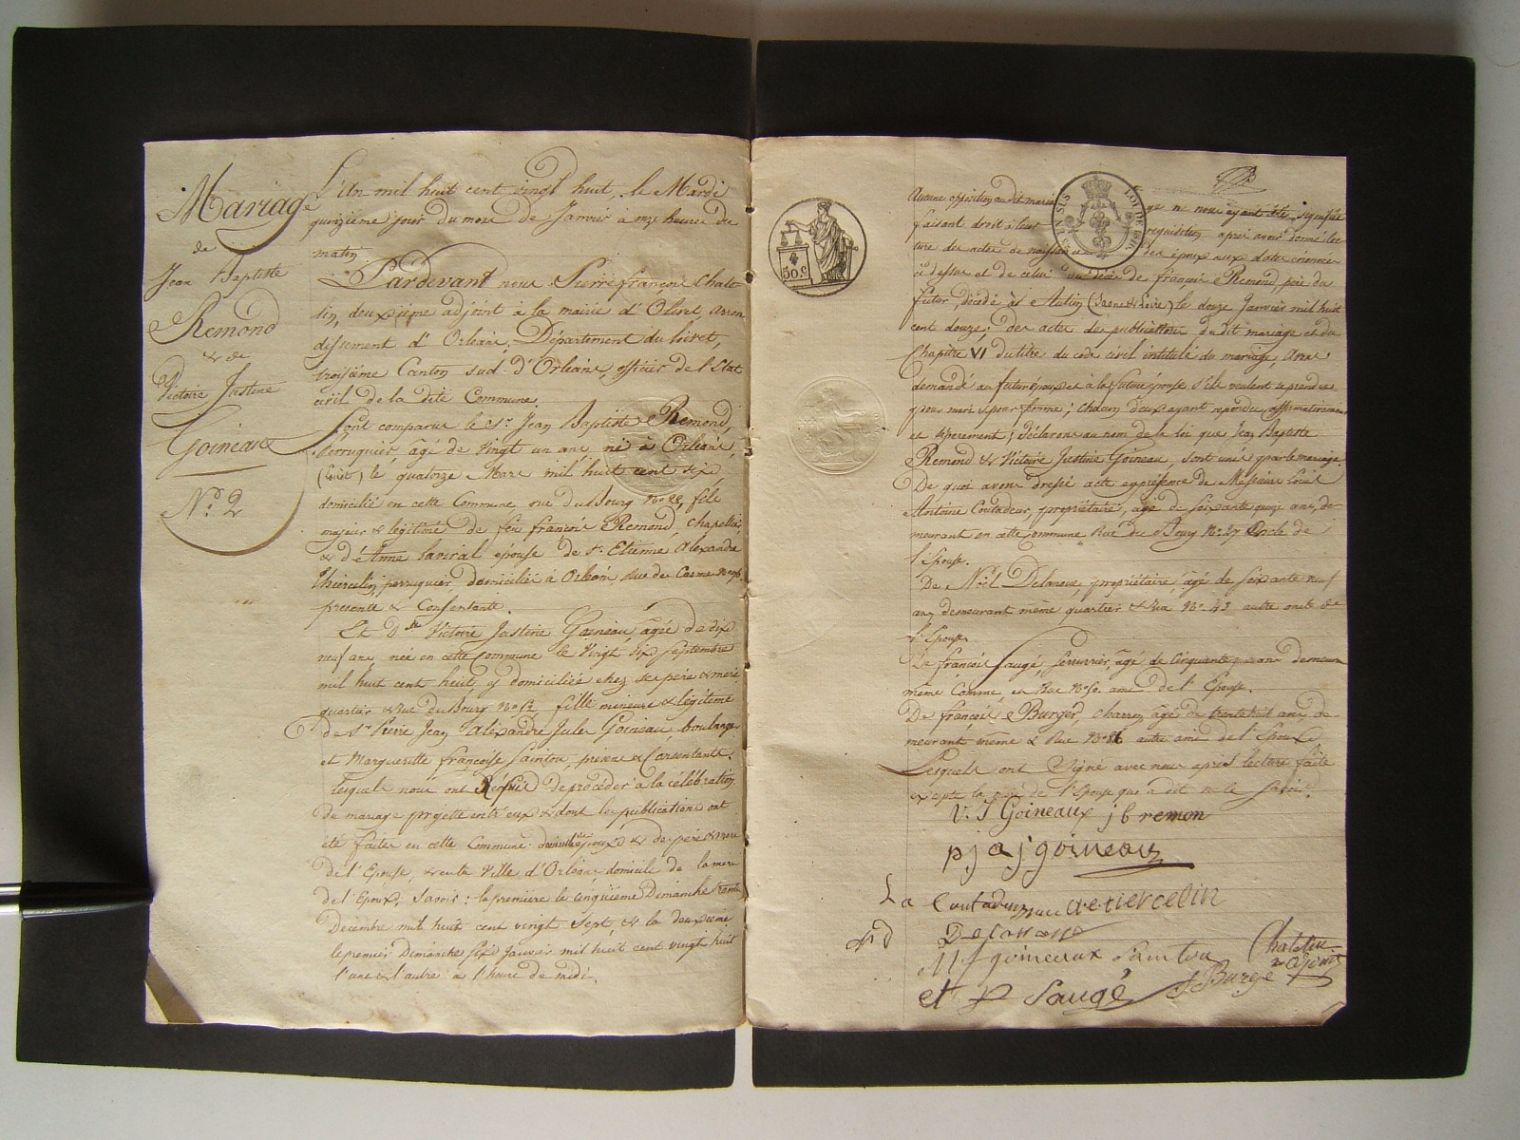 Mariage
de
Jean Baptiste
Remond
& de
Victoire Justine
Goineau
N.° 2
L'An mil huit cent vingt huit, le Mardi
quinzième jour du mois de Janvier à onze heures du
matin
Pardevant nous Pierre françois Chate
lin, deuxième adjoint à la mairie d'Olivet, arron
dissement d'Orléans, Département du loiret,
troisième Canton sud d'Orléans, officier de l'Etat
civil de la dite Commune.
Sont comparus le Sr. Jean Baptiste Remond,
Perruquier, âgé de Vingt un ans, né à Orléans,
(Loiret) le quatorze Mars mil huit cent six,
domicilié en cette Commune, rue du Bourg No 28, fils
majeur & légitime de feu françois Remond, chapelier,
& d'Anne Laviral épouse de Sr. Etienne Alexandre
Thiercelin, perruquier, domiciliée à Orléans, Rue des Carmes
présente & Consentante.
Et Dlle Victoire Justine Goineau, âgée de dix
neuf ans, née en cette Commune le Vingt six Septembre
mil huit cent huit, y domiciliée chez ses père & mère
quartier & Rue du Bourg No 52 fille mineure & légitime
de Sr. Pierre Jean Alexandre Jules Goineau, boulanger
et Margueritte françoise Sainton, présens & Consentants.
lesquels nous ont Réquis de procéder à la célébration
du mariage projetté entr'eux & dont les publications ont
été faites en cette Commune domicile & de père & mère
de l'Epouse, & en la Ville d'Orléans domicile de la mère
de l'Epoux, Savoir: la première le cinquième Dimanche trente
Décembre mil huit cent vingt Sept, & la deuxième
le premier Dimanche Six Janvier mil huit cent vingt huit
l'une & l'autre à l'heure de midi.
50 C
Aucune opposition au dit mariage ne nous ayant été signifiée
faisant droit à leur réquisition après avoir donné lec
ture des actes de naissance des époux aux dates énoncées
ci dessus et de celui du décès de françois Remond, père du
futur, décédé à Autun (Saône & Loire) le douze Janvier mil huit
cent douze; des actes de publications du dit mariage et du
Chapitre VI du titre du code civil intitulé du mariage, avons
demandé au futur époux et à la future épouse s'ils veulent se prendre
pour mari & pour femme; chacun d'eux ayant répondu affirmativement
et séparement; déclarons au nom de la loi que Jean Baptiste
Remond & Victoire Justine Goineau, sont unis par le mariage.
De quoi avons dressé acte en présence de Messieurs Louis
Antoine Coutadeur, propriétaire, âgé de soixante quinze ans, de
meurant en cette commune Rue du Bourg No 27 Oncle de
l'Epouse.
De Noël Delaneau, propriétaire, âgé de soixante neuf
ans demeurant même quartier & Rue No 43 autre oncle de
l'Epouse.
De françois Saugé, Serrurier, âgé de Cinquante ans demeurant
même Comme, en Rue No 50 ami de l'Epouse.
De françois Burger, charron âgé de trente huit ans de
meurant même & Rue No 26 autre ami de l'Epoux.
Lesquels ont Signé avec nous après lecture faite
excepté la de l'Epoux qui a dit ne le Savoir.
V. J Goineaux j b remon
p j a j goineau
La Coutadeur tiercelin
M f goineaux Sainton
Chatelin
adjoint
et f Saugé f Burge